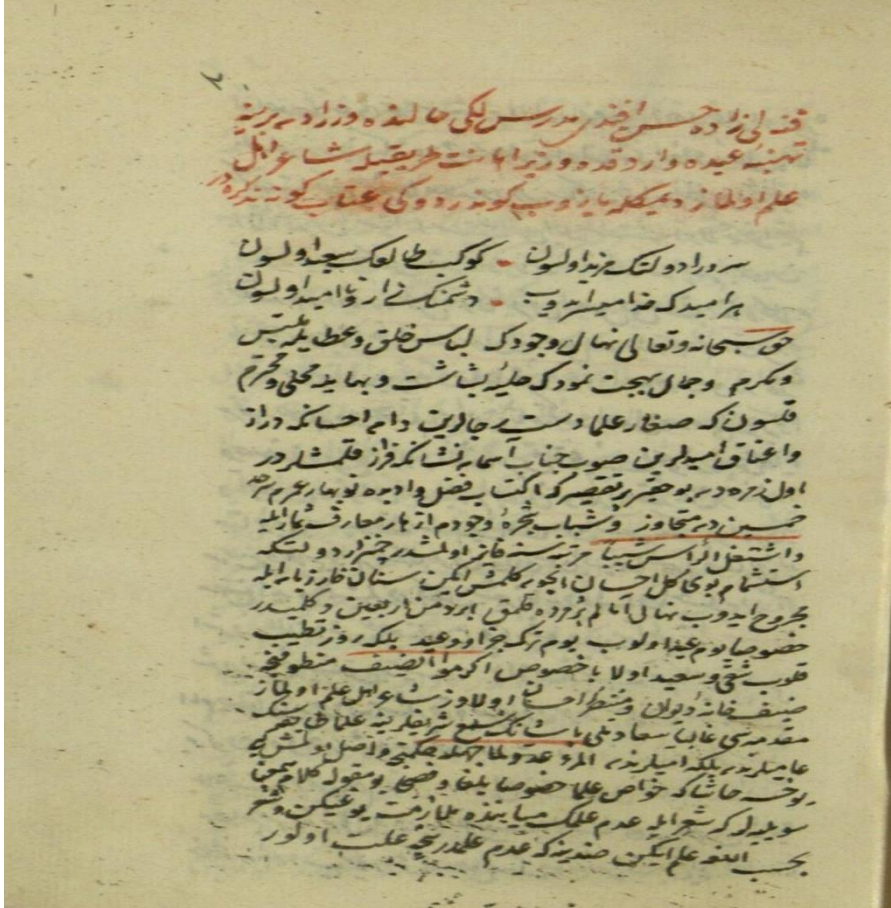 قنه لی زاده حسن افندی مدرس لکی حالنده وزرادن برینه
تهنیهٔ عیده واردقده وزیر اهانت طریقیله شاعر اهل
علم اولماز دیمکله یازوب کوندردوکی عتاب کونه تذکره در
سرورا دولتک مزید اولسون کوکب طالعک سعید اولسون
هر امید که خدا میسر ایدوب دشمنک نا امید اولسون
حق سبحانه وتعالی نهال وجودک لباس خلق وعطا یله ملتبس
ومکرم وجمال بهجت نمودک حلیهٔ بشاشت وبها یله محلی ومحترم
قلسون که صغار علما دست رجالرین دامن احسانکه دراز
واعناق امیدلرین صوب جناب آسمان نشانکه فراز قلمشلردر
اول زمره دن بو حقیر پر تقصیر که اکتساب فضل وادبده نوبهار عمرم سرحد
خمسین دن متجاوز وشباب شجرهٔ وجودم ازهار معارف
واشتعل الرأس شیبا مرتبه سنه فایز اولمشدر چمنزار دولتکه
استشمام بوی کل احسان ایچون کلمش ایکن سنان خار زبان ایله
مجروح ایدوب نهال امالم پژمرده قلمق
خصوصا یوم عید اولوب یوم ترک بلکه روز تطییب
قلوب شقی وسعید اولا با خصوص اکرموا الضیف
ضیف خانهٔ دیوان ومنتظر احسان اولاوز شاعر اهل علم اولماز
مقدمه سی غالبا سعادتلی پاشانک شریفلرینه علماء
بلکه المرء عدو لما جهله واصل اولمش
یوخسه حاشا که خواص علما خصوصا بلغا وفصحا بو مقوله کلام
سویلیه لر که شعر ایله عدم علمک میاننده ملازمت یوغیکن وشعر
بحسب اللغه علم ایکن ضدینه که عدم علمدر نیجه علت اولور